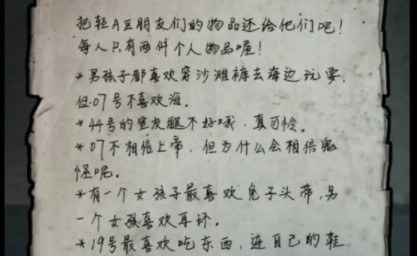 把轻A豆朋友们的物品还给他们吧!
每人只有两件个人物品喔!
*男孩子都喜欢穿沙滩裤去海边玩耍,
但07号不喜欢海。
*44号的室友腿不好哦,真可怜。
*07不相信上帝,但为什么会相信鬼
怪呢。
*有一个女孩子最喜欢兔子头带,另
一个女孩喜欢耳环。
*19号最喜欢吃东西,连自己的鞋